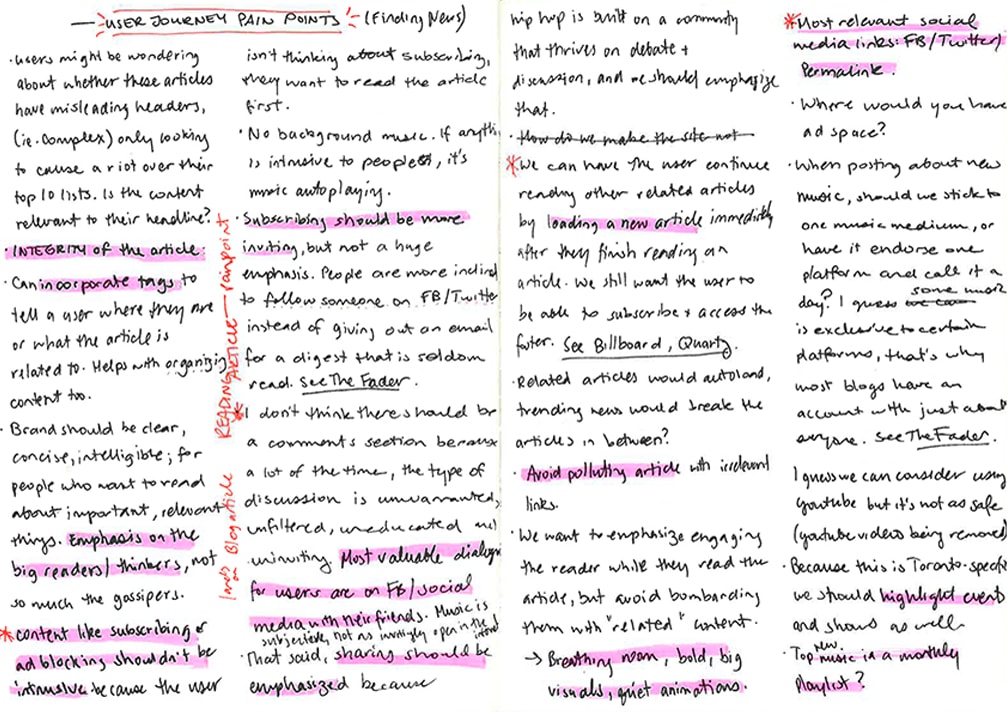 — USER JOURNEY PAIN POINTS (Finding News)
· users might be wondering
about whether these articles
have misleading headers,
(ie. complex) only looking
to cause a riot over their
top 10 lists. Is the content
relevant to their headline?
· INTEGRITY of the article.
· Can incorporate tags to
tell a user where they are
or what the article is
related to. Helps with organizing
content too.
· Brand should be clear,
concise, intelligible; for
people who want to read
about important, relevant
things. Emphasis on the
big readers/thinkers, not
so much the gossipers.
* content like subscribing or
ad blocking shouldn't be
intrusive because the user
isn't thinking about subscribing,
they want to read the article
first.
· No background music. If anythi
is intrusive to people, it's
music autoplaying.
· Subscribing should be more
inviting, but not a huge
emphasis. People are more inclined
to follow someone on FB/Twitter
instead of giving out an email
for a digest that is seldom
read. See The Fader.
* I don't think there should be
a comments section because
a lot of the time, the type of
discussion is unwarranted,
unfiltered, uneducated and
uninviting. Most valuable dialogu
for users are on FB/social
media with their friends. Music is
subjective, not as invitingly open in the
That said, sharing should be
emphasized because
lands on Blog article
READING ARTICLE — painpoint
hip hop is built on a community
that thrives on debate +
discussion, and we should emphasize
that.
· How do we make the site not
* We can have the user continue
reading other related articles
by loading a new article immediately
after they finish reading an
article. We still want the user to
be able to subscribe & access the
footer. See Billboard, Quartz.
· Related articles would autoload,
trending news would break the
articles in between?
· Avoid polluting article with irrelevant
links.
· We want to emphasize engaging
the reader while they read the
article, but avoid bombarding
them with "related" content.
→ Breathing room, bold, big
visuals, quiet animations.
* Most relevant social
media links: FB/Twitter/
Permalink.
· Where would you have
ad space?
· When posting about new
music, should we stick to
one music medium, or
have it endorse one
platform and call it a
day? I guess some music
is exclusive to certain
platforms, that's why
most blogs have an
account with just about
anyone. See The Fader.
I guess we can consider using
Youtube but it's not as safe
(youtube videos being removed)
· Because this is Toronto-specific
we should highlight event
and shows as well.
· Top new music in a monthly
Playlist?